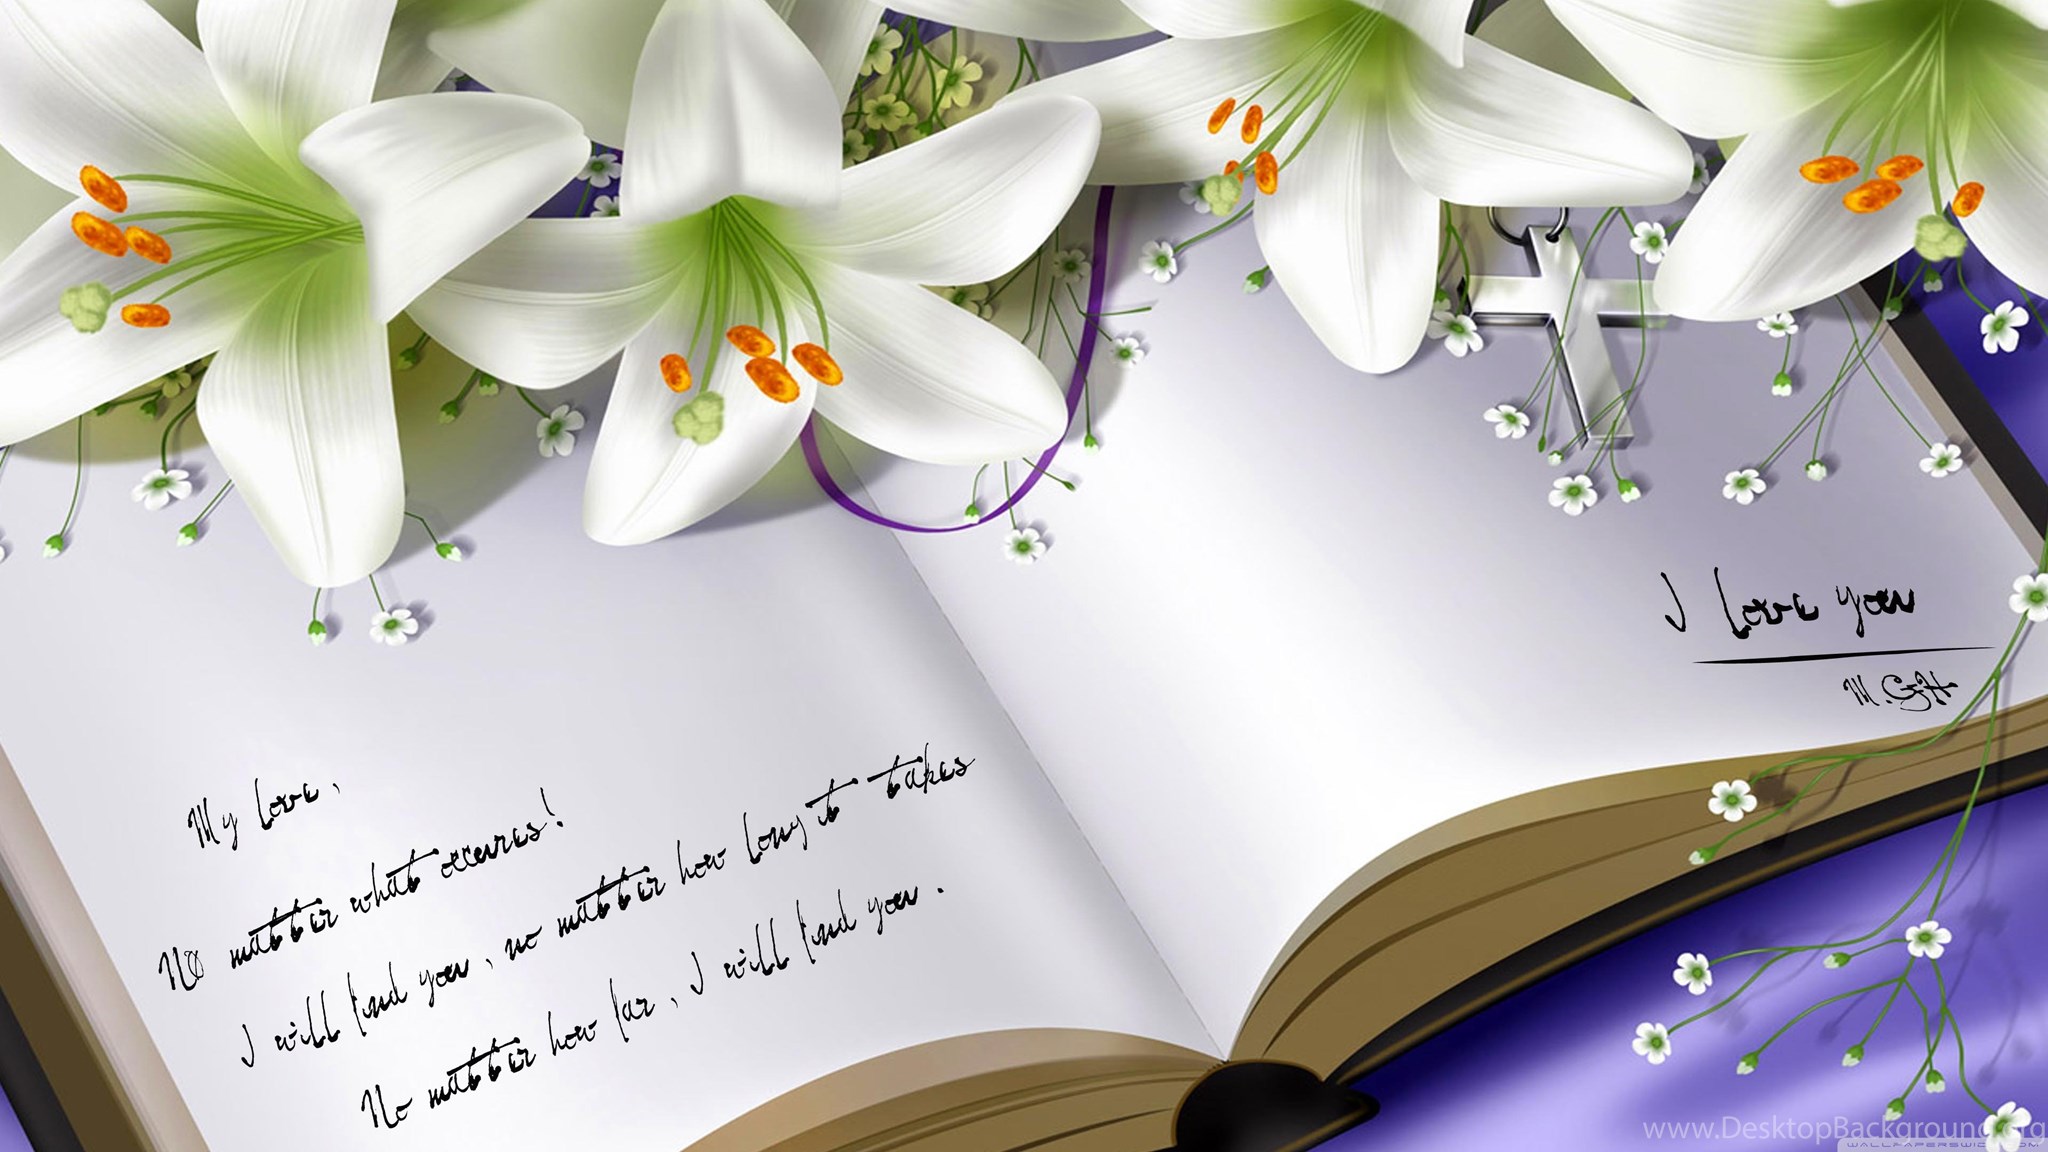 My love,
No matter what occures!
I will find you, no matter how long it takes
No matter how far, I will find you.
I love you
M.GH
www.DesktopBackground.org